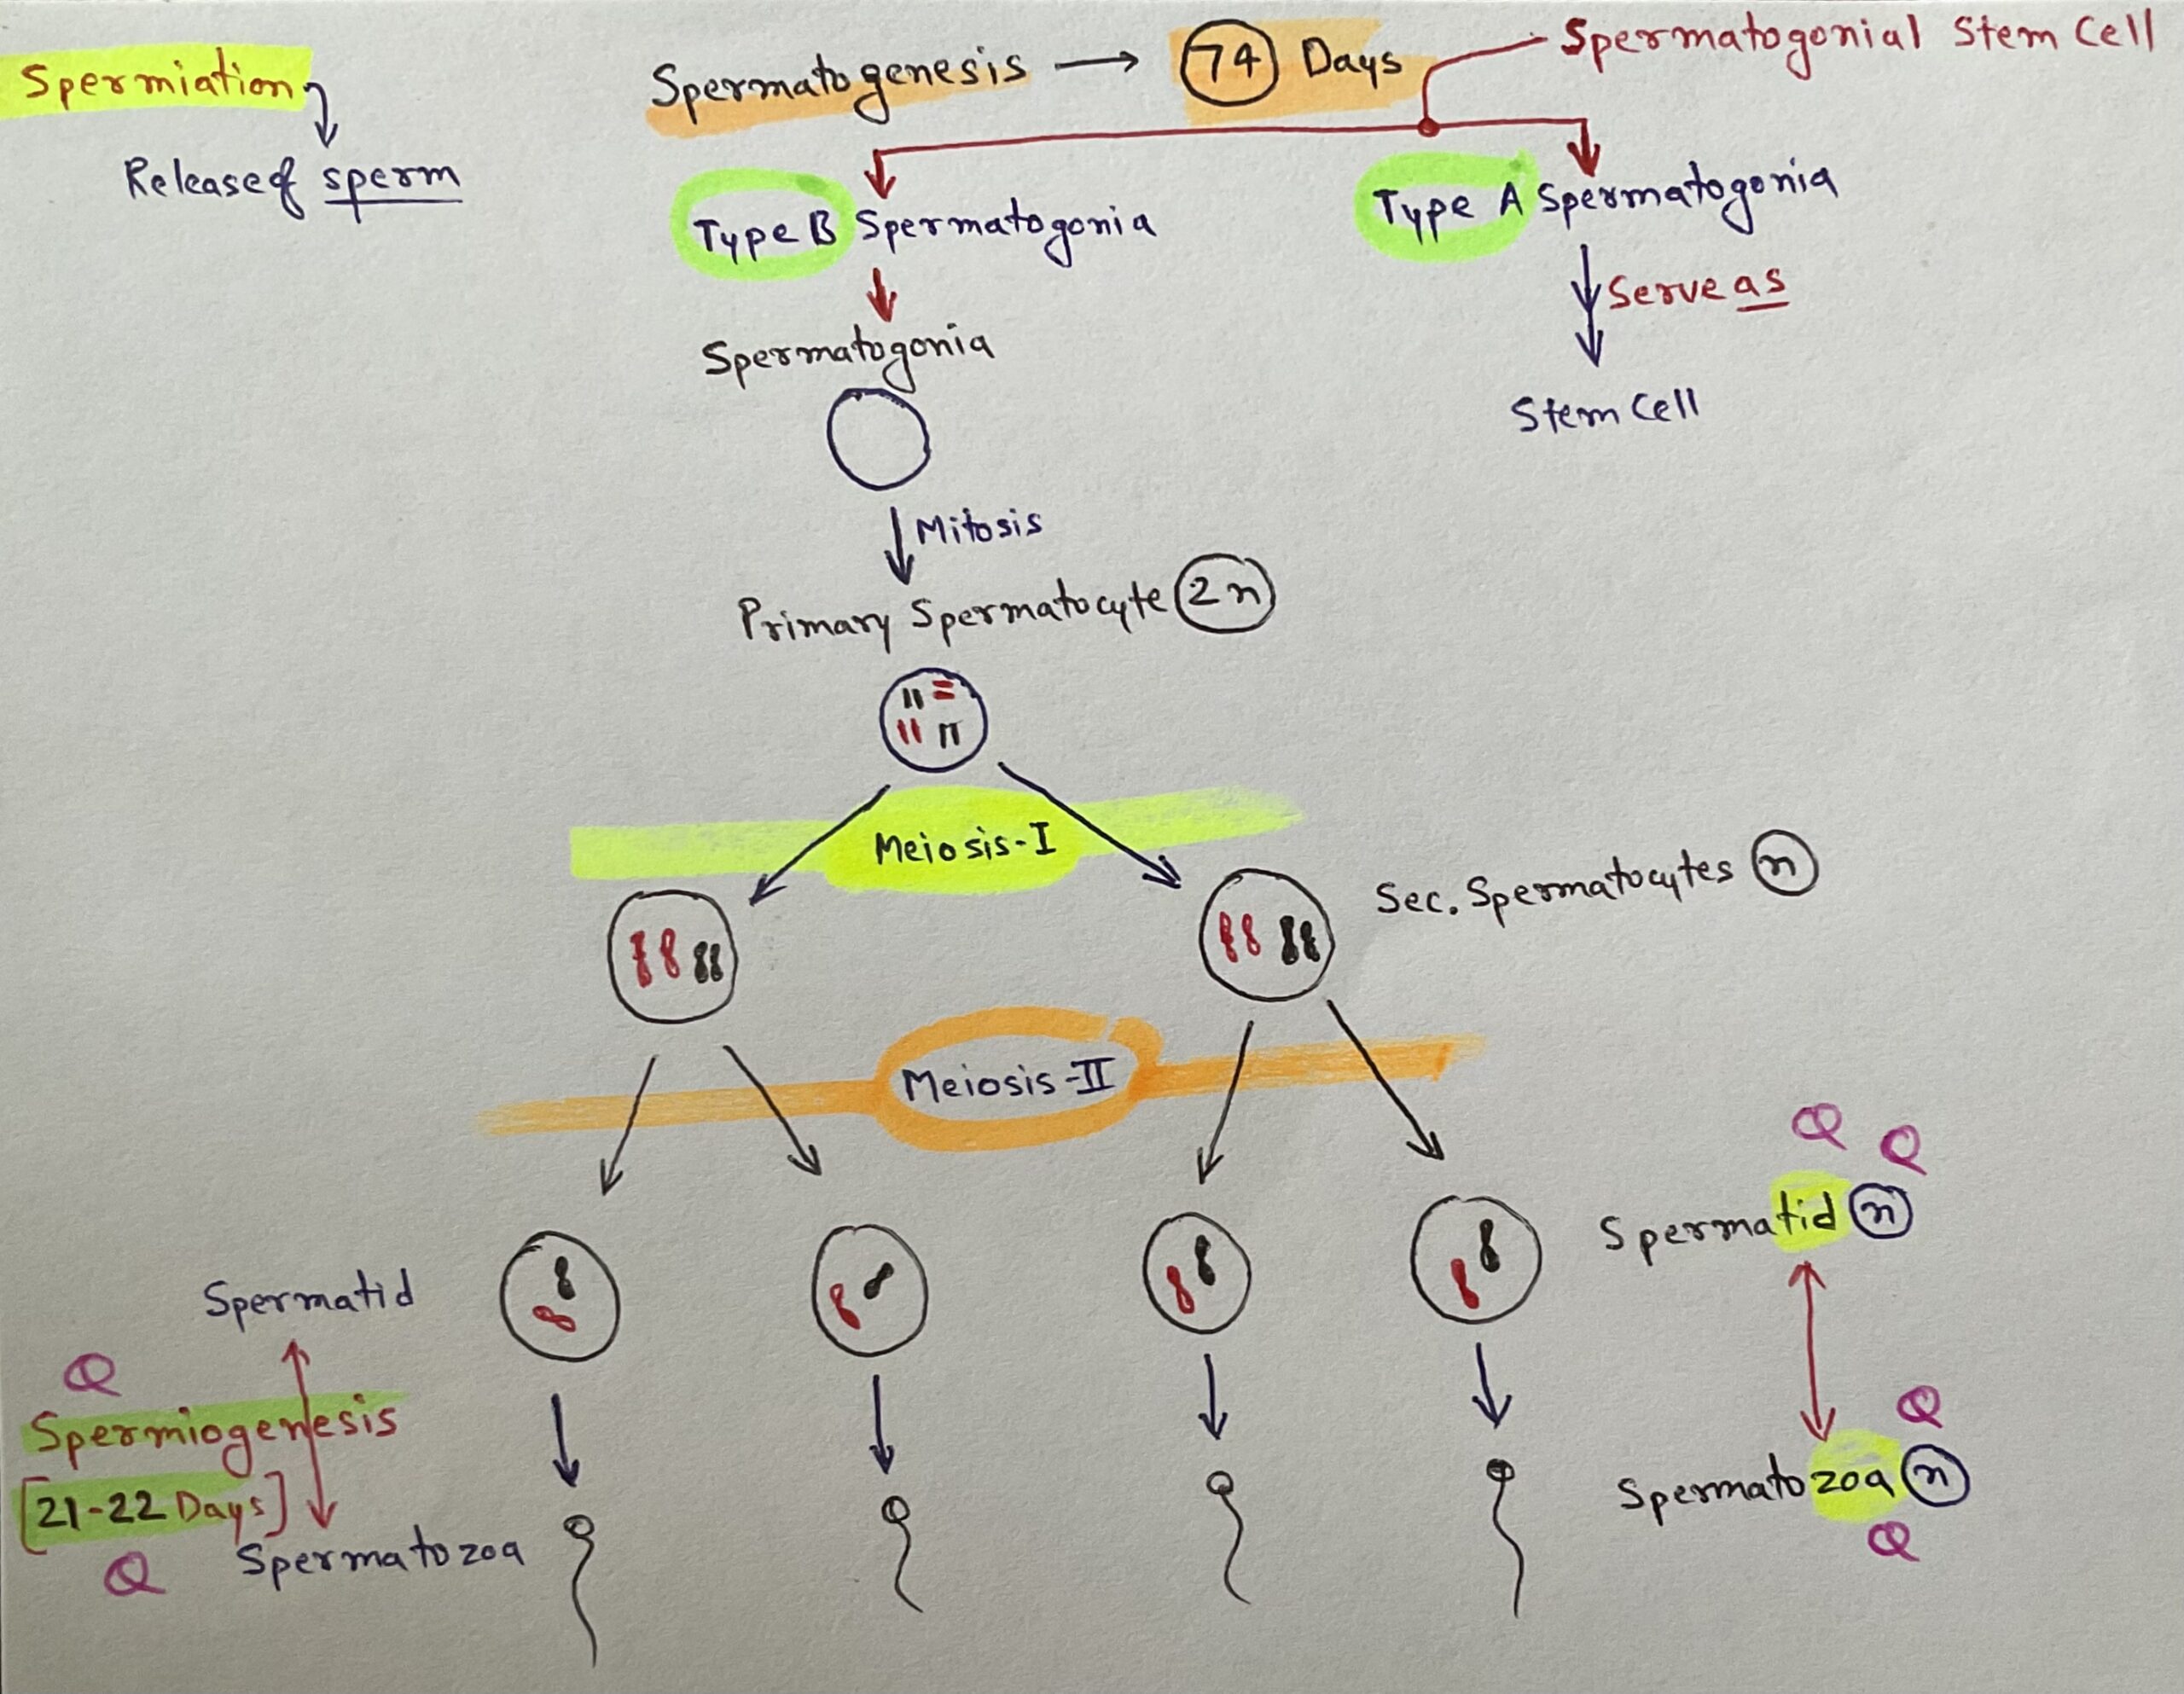 Spermiation
Release of sperm
Spermatogenesis → 74 Days
Spermatogonial Stem Cell
Type B Spermatogonia
Type A Spermatogonia
Serve as
Stem Cell
Spermatogonia
Mitosis
Primary Spermatocyte 2n
Meiosis-I
Sec. Spermatocytes n
Meiosis-II
Q Q
Spermatid n
Spermatid
Q
Spermiogenesis
[21-22 Days]
Q
Spermatozoa
Q
Spermatozoa n
Q